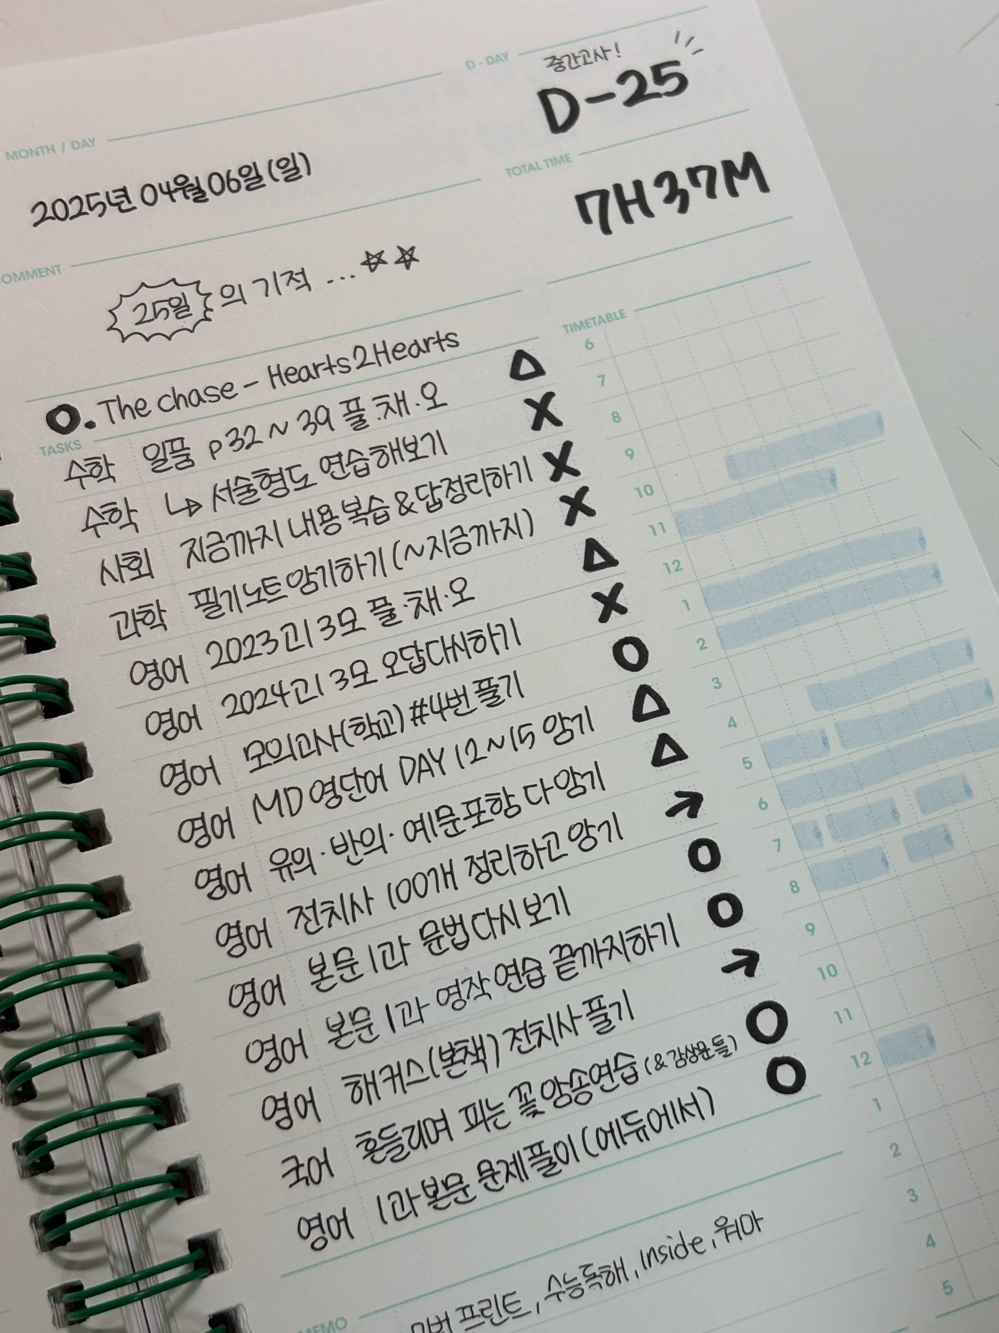 D-DAY
중간고사!
D-25
MONTH / DAY
2025년 04월 06일 (일)
TOTAL TIME
7H37M
OMMENT
25일의 기적 ... ☆☆
O. The chase - Hearts2Hearts
TASKS
수학 일품 p32~39 풀.채.오 △
수학 ↳ 서술형도 연습해보기 X
사회 지금까지 내용복습&답정리하기 X
과학 필기노트암기하기(~지금까지) X
영어 2023고1 3모 풀.채.오 △
영어 2024고1 3모 오답다시하기 X
영어 모의고사(학교)#4번풀기 O
영어 MD영단어 DAY 12~15 암기 △
영어 유의·반의·예문포함 다암기 △
영어 전치사 100개 정리하고 암기 →
영어 본문1과 문법다시보기 O
영어 본문1과 영작연습 끝까지하기 O
영어 해커스(본책) 전치사풀기 →
국어 흔들리며 피는 꽃 암송연습(&감상문들) O
영어 1과본문 문제풀이(에듀에서) O
TIMETABLE
6
7
8
9
10
11
12
1
2
3
4
5
6
7
8
9
10
11
12
1
2
3
4
5
MEMO
프린트, 수능독해, Inside, 워마